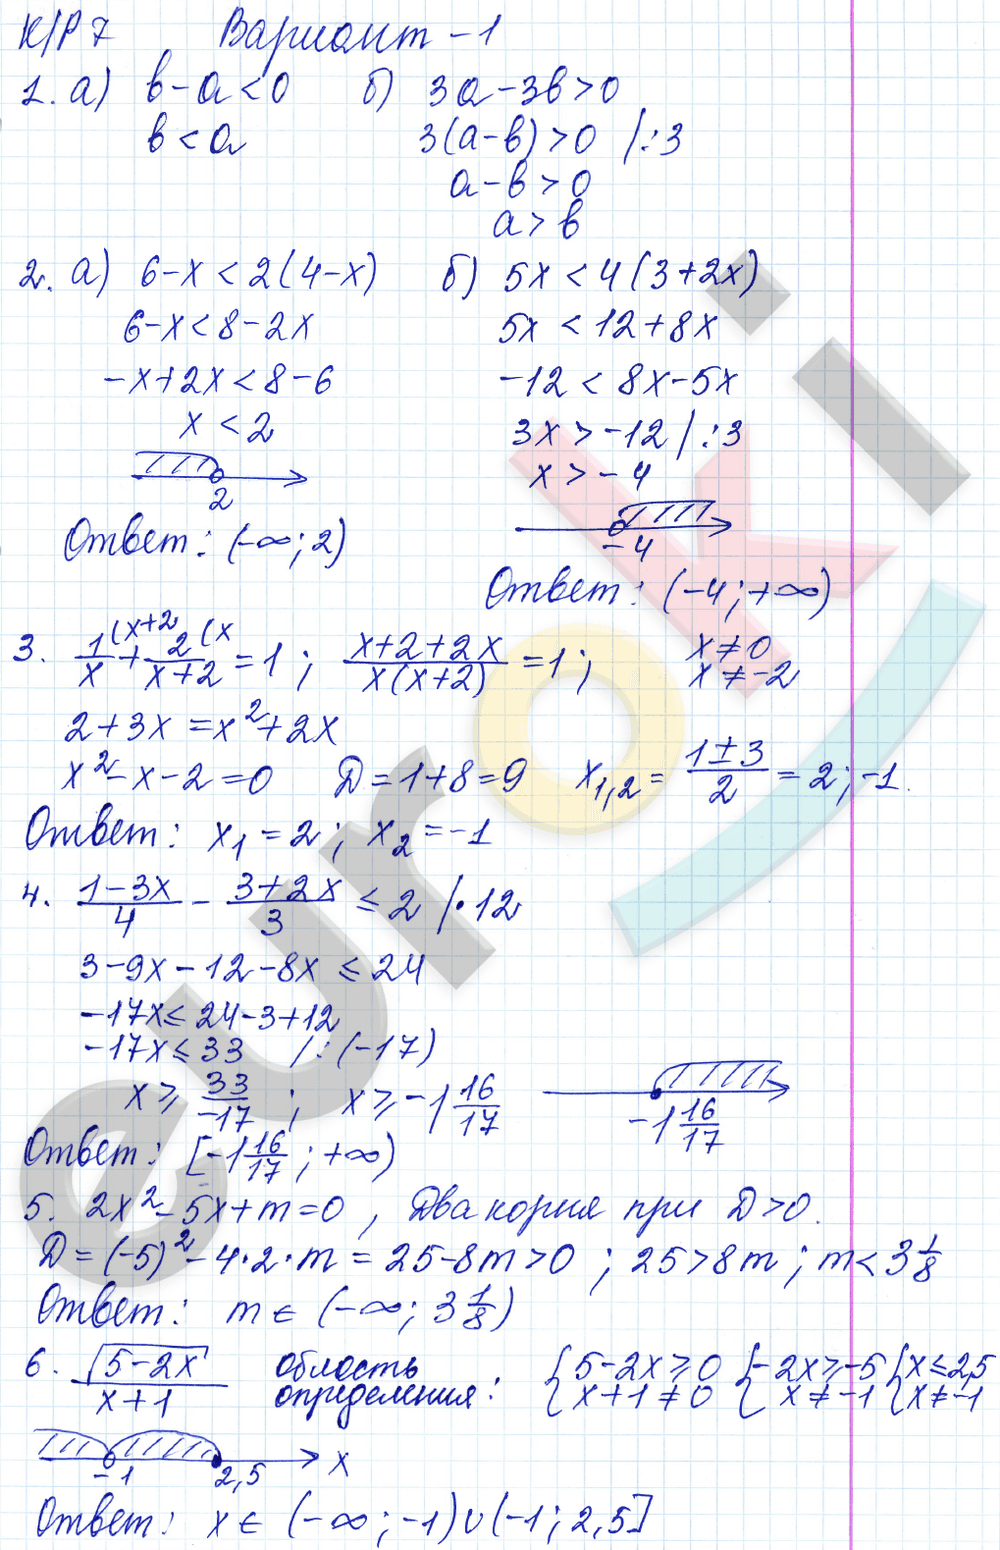 К/Р 7 Вариант - 1
1. а) b - a < 0 б) 3a - 3b > 0
b < a 3(a - b) > 0 /:3
a - b > 0
a > b
2. а) 6 - x < 2(4 - x) б) 5x < 4(3 + 2x)
6 - x < 8 - 2x 5x < 12 + 8x
-x + 2x < 8 - 6 -12 < 8x - 5x
x < 2 3x > -12 /:3
x > -4
2
-4
Ответ: (-∞; 2)
Ответ: (-4; +∞)
3. 1/x (x+2 + 2/(x+2) (x = 1; (x+2+2x)/(x(x+2)) = 1; x ≠ 0
x ≠ -2
2 + 3x = x² + 2x
x² - x - 2 = 0 D = 1 + 8 = 9 x₁,₂ = (1 ± 3)/2 = 2; -1.
Ответ: x₁ = 2; x₂ = -1
4. (1 - 3x)/4 - (3 + 2x)/3 ≤ 2 /·12
3 - 9x - 12 - 8x ≤ 24
-17x ≤ 24 - 3 + 12
-17x ≤ 33 /:(-17)
x ≥ 33/-17; x ≥ -1 16/17
-1 16/17
Ответ: [-1 16/17; +∞)
5. 2x² - 5x + m = 0, Два корня при D > 0.
D = (-5)² - 4·2·m = 25 - 8m > 0; 25 > 8m; m < 3 1/8
Ответ: m ∈ (-∞; 3 1/8)
6. √(5 - 2x)/(x + 1) область определения: {5 - 2x ≥ 0 {-2x ≥ -5 {x ≤ 2,5
{x + 1 ≠ 0 {x ≠ -1 {x ≠ -1
-1 2,5 x
Ответ: x ∈ (-∞; -1) ∪ (-1; 2,5]
euroki